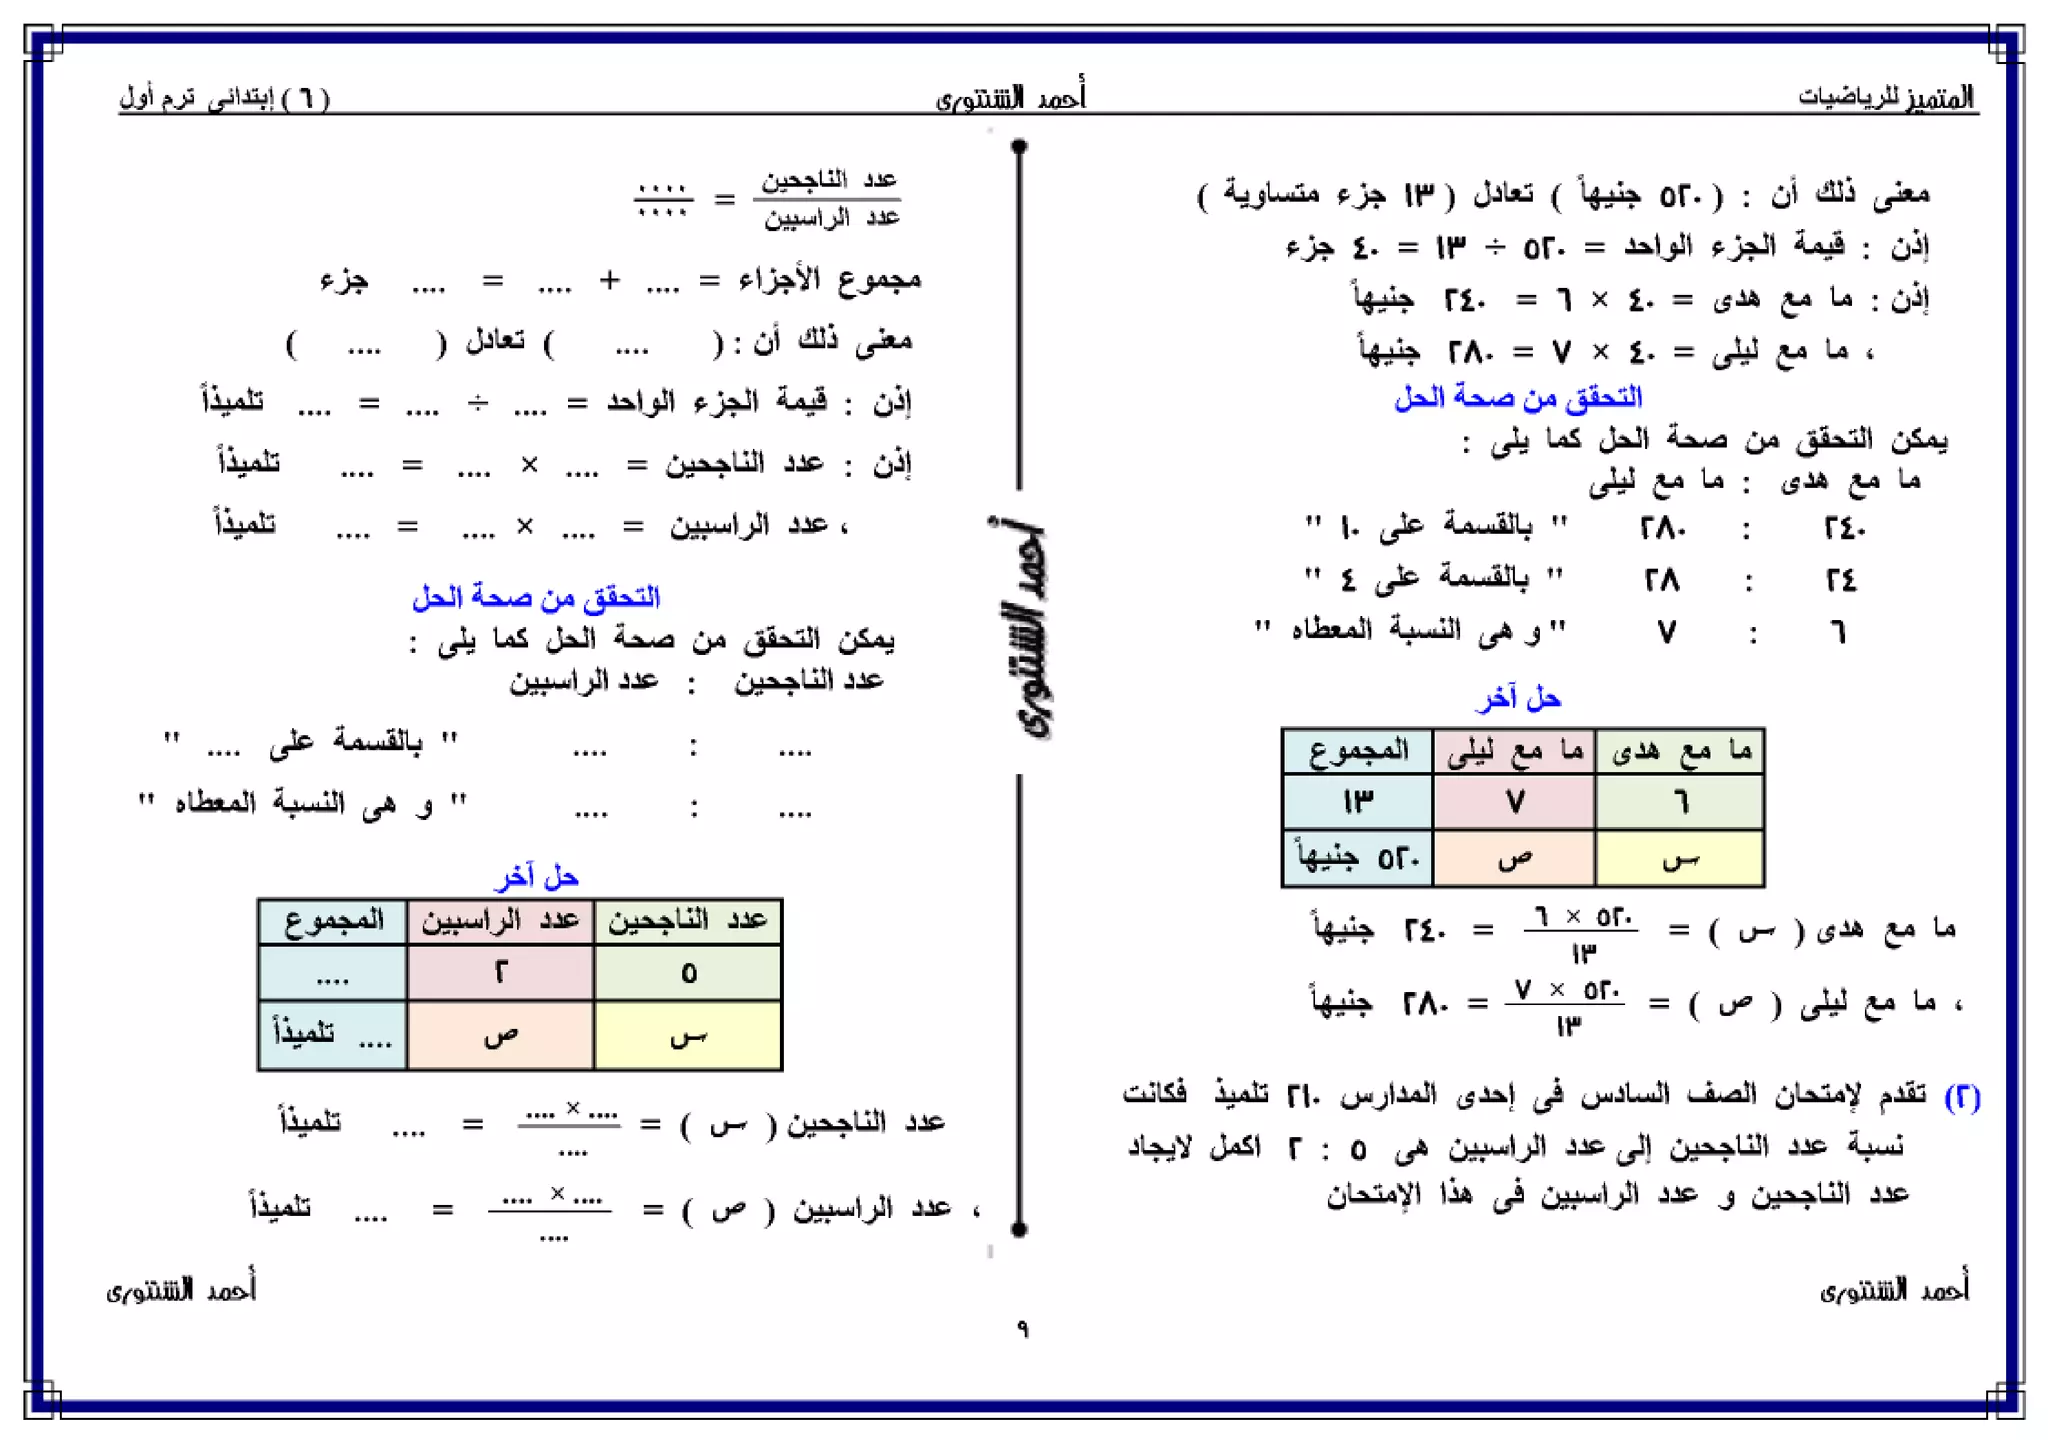 المتميز للرياضيات
أحمد الشنتورى
( ٦ ) إبتدائى ترم أول
معنى ذلك أن : ( ٥٢٠ جنيهاً ) تعادل ( ١٣ جزء متساوية )
إذن : قيمة الجزء الواحد = ٥٢٠ ÷ ١٣ = ٤٠ جزء
إذن : ما مع هدى = ٤٠ × ٦ = ٢٤٠ جنيهاً
، ما مع ليلى = ٤٠ × ٧ = ٢٨٠ جنيهاً
التحقق من صحة الحل
يمكن التحقق من صحة الحل كما يلى :
ما مع هدى : ما مع ليلى
٢٤٠ : ٢٨٠ " بالقسمة على ١٠ "
٢٤ : ٢٨ " بالقسمة على ٤ "
٦ : ٧ " و هى النسبة المعطاه "
حل آخر
ما مع هدى ما مع ليلى المجموع
٦ ٧ ١٣
س ص ٥٢٠ جنيهاً
٥٢٠ × ٦
ما مع هدى ( س ) = = ٢٤٠ جنيهاً
١٣
٥٢٠ × ٧
، ما مع ليلى ( ص ) = = ٢٨٠ جنيهاً
١٣
(٢) تقدم لإمتحان الصف السادس فى إحدى المدارس ٢١٠ تلميذ فكانت
نسبة عدد الناجحين إلى عدد الراسبين هى ٥ : ٢ اكمل لايجاد
عدد الناجحين و عدد الراسبين فى هذا الإمتحان
أحمد الشنتورى
أحمد الشنتورى
عدد الناجحين ....
=
عدد الراسبين ....
مجموع الأجزاء = .... + .... = .... جزء
معنى ذلك أن : ( .... ) تعادل ( .... )
إذن : قيمة الجزء الواحد = .... ÷ .... = .... تلميذاً
إذن : عدد الناجحين = .... × .... = .... تلميذاً
، عدد الراسبين = .... × .... = .... تلميذاً
التحقق من صحة الحل
يمكن التحقق من صحة الحل كما يلى :
عدد الناجحين : عدد الراسبين
.... : .... " بالقسمة على .... "
.... : .... " و هى النسبة المعطاه "
حل آخر
عدد الناجحين عدد الراسبين المجموع
٥ ٢ ....
س ص .... تلميذاً
.... × ....
عدد الناجحين ( س ) = = .... تلميذاً
....
.... × ....
، عدد الراسبين ( ص ) = = .... تلميذاً
....
أحمد الشنتورى
٩